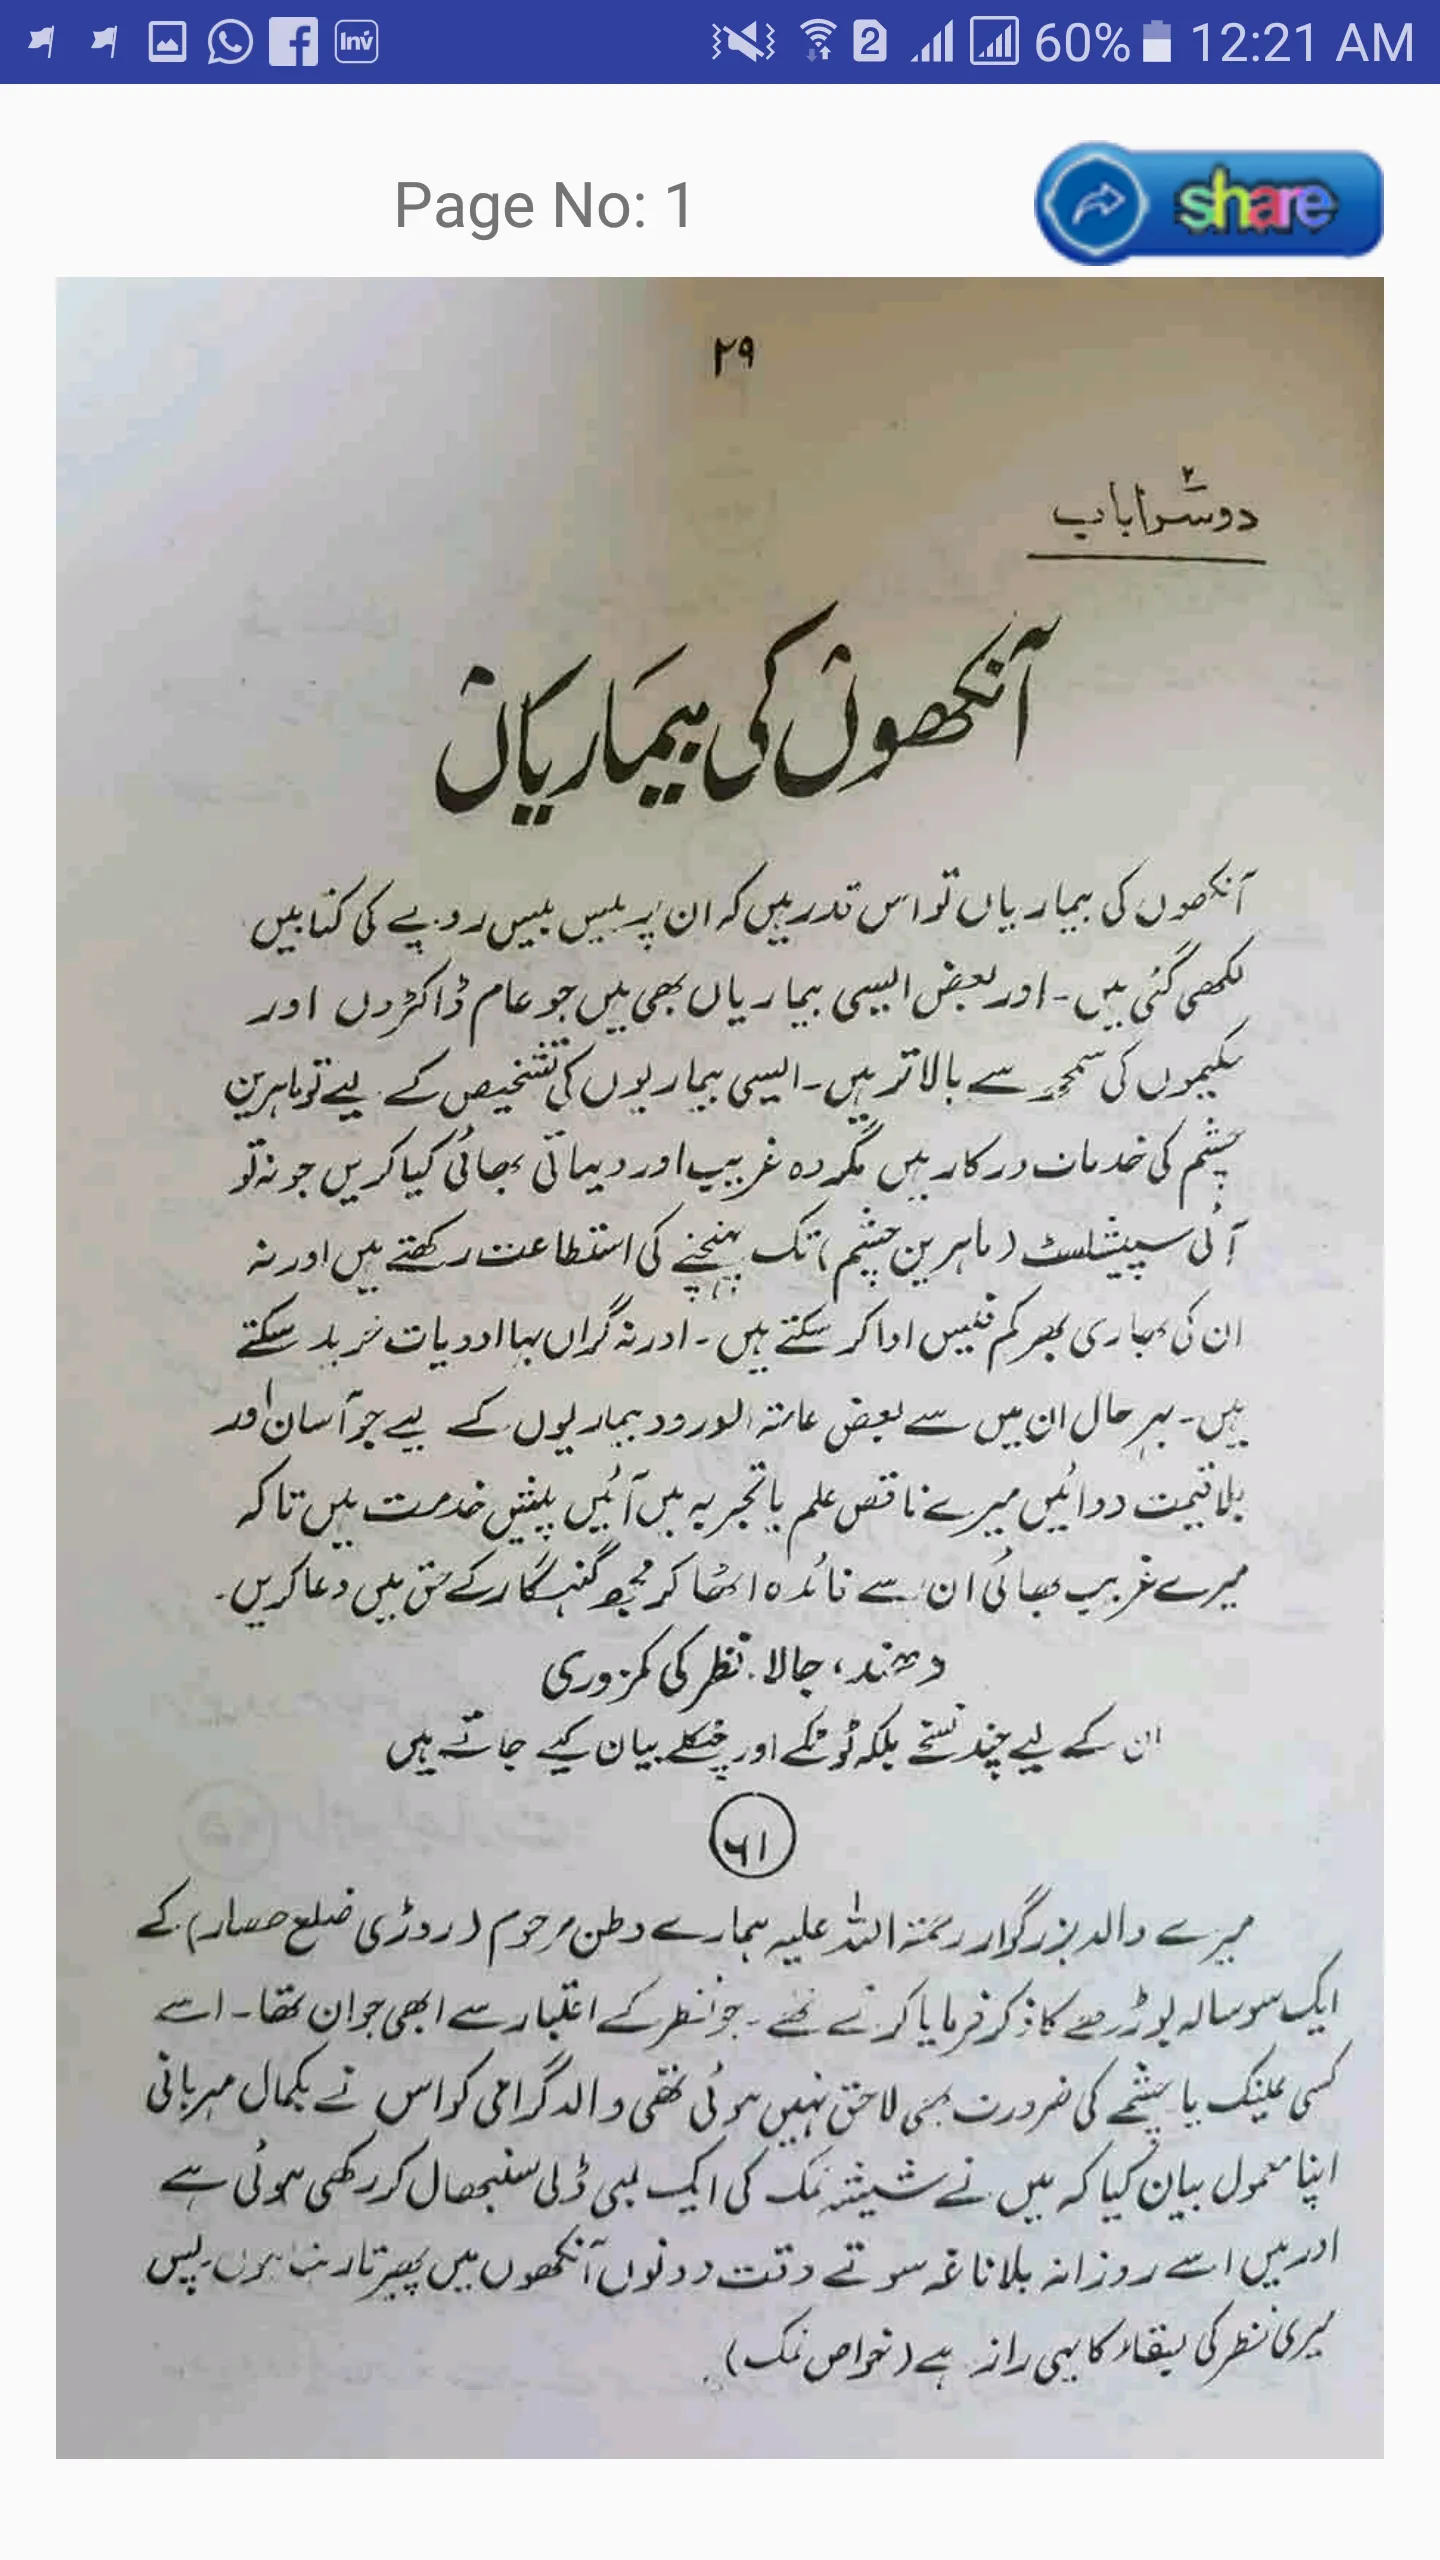 Inv
2
60%
12:21 AM
Page No: 1
share
۲۹
۲
دوسرا باب
آنکھوں کی بیماریاں
آنکھوں کی بیماریاں تو اس قدر ہیں کہ ان پر بیس بیس روپے کی کتابیں
لکھی گئی ہیں ۔ اور بعض ایسی بیماریاں بھی ہیں جو عام ڈاکٹروں اور
حکیموں کی سمجھ سے بالاتر ہیں ۔ ایسی بیماریوں کی تشخیص کے لیے تو ماہرین
چشم کی خدمات درکار ہیں مگر وہ غریب اور دیہاتی بھائی کیا کریں جو نہ تو
آئی سپیشلسٹ (ماہرین چشم) تک پہنچنے کی استطاعت رکھتے ہیں اور نہ
ان کی بھاری بھرکم فیس ادا کر سکتے ہیں ۔ اور نہ گراں بہا ادویات خرید سکتے
ہیں ۔ بہر حال ان میں سے بعض عامۃ الورود بیماریوں کے لیے جو آسان اور
بلا قیمت دوائیں میرے ناقص علم یا تجربہ میں آئیں پیش خدمت ہیں تاکہ
میرے غریب بھائی ان سے فائدہ اٹھا کر مجھ گنہگار کے حق میں دعا کریں ۔
دھند ، جالا . نظر کی کمزوری
ان کے لیے چند نسخے بلکہ ٹوٹکے اور چٹکلے بیان کیے جاتے ہیں
۶۱
میرے والد بزرگوار رحمتہ اللہ علیہ ہمارے وطن مرحوم (روڑی ضلع حصار) کے
ایک سو سالہ بوڑھے کا ذکر فرمایا کرتے تھے ۔ جو نظر کے اعتبار سے ابھی جوان تھا ۔ اسے
کسی عینک یا چشمے کی ضرورت بھی لاحق نہیں ہوئی تھی والد گرامی کو اس نے بکمال مہربانی
اپنا معمول بیان کیا کہ میں نے شیشہ نمک کی ایک لمبی ڈلی سنبھال کر رکھی ہوئی ہے
اور میں اسے روزانہ بلا ناغہ سوتے وقت دونوں آنکھوں میں پھیرتا رہتا ہوں ۔ پس
میری نظر کی بقاء کا یہی راز ہے (خواص نمک)